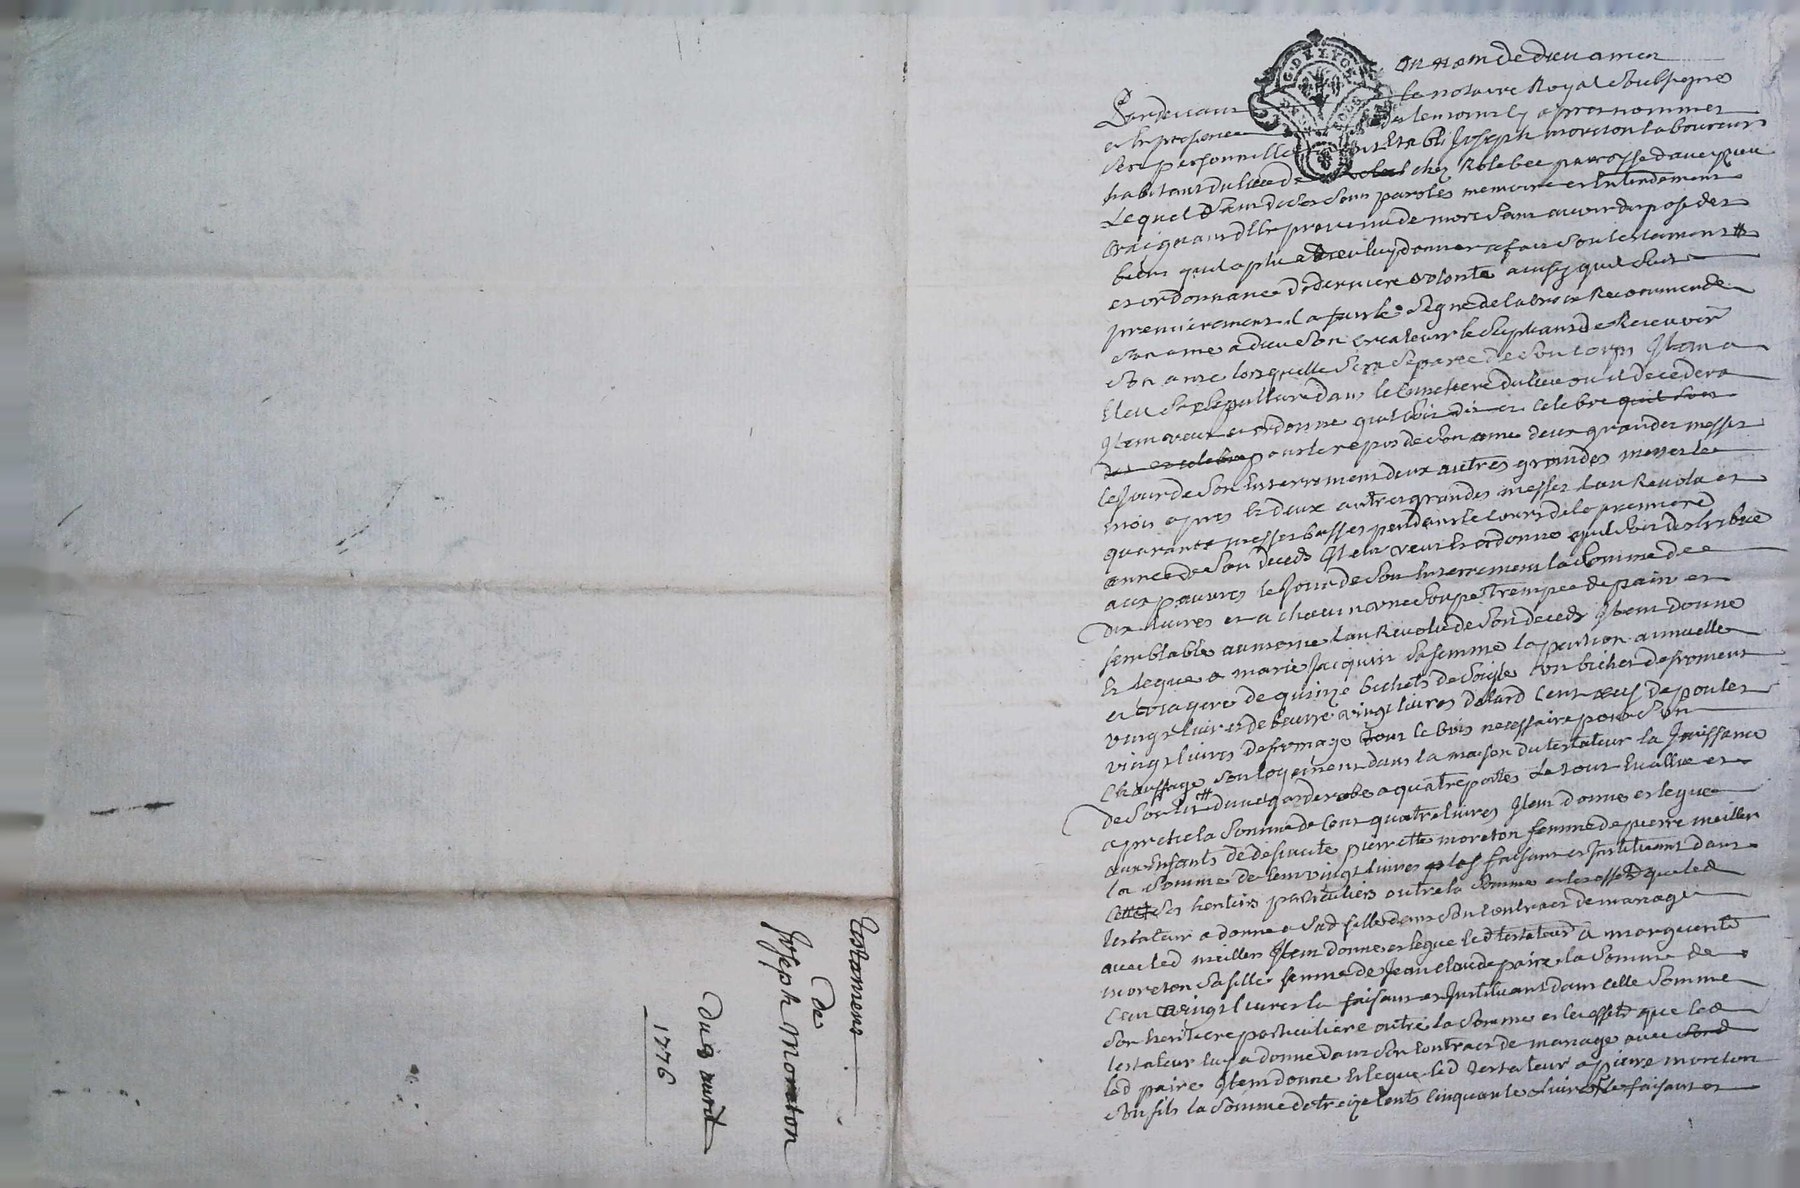 Testament
de
Joseph Moreton
Du 9 avril
1776
G. DE LYON
au nom de dieu amen
Pardevant le notaire Royal soussigné
et en presence des temoins cy apres nommes
est personnellement Etabli Joseph moreton laboureur
habitant du lieu de chez Rolebee parroisse
Lequel sain de ses sens paroles memoire et Entendement
Craignant Etre prevenu de mort sans avoir disposé des
biens quil a plu a Dieu luy donner a fait son testament
et ordonnance de derniere volonté ainsy quil suit
premierement il a fait le signe de la croix Recommandé
son ame a dieu son createur le supliant de Recevoir
son ame lorsquelle sera separée de son corps Item a
Eleu sa sepulture dans le Cimetiere du lieu ou il decedera
Item veut et ordonne quil soit dit et celebré quil soit
dit et celebré pour le repos de son ame deux grandes messes
le jour de son Enterrement deux autres grandes messes le
mois apres Et deux autres grandes messes lan Revolu et
quarante messes basses pendant le cours de la premiere
année de son deces Item veut Et ordonne quil soit distribué
aux pauvres le jour de son Enterrement la somme de
dix livres et a chacun une soupe trempée de pain et
semblable aumone lan Revolu de son deces Item donne
Et legue a marie Jacquin sa femme la pension annuelle
et viagere de quinze bichets de seigle un bichet de froment
vingt livres de beurre vingt livres de lard Cent oeufs de poules
vingt livres de fromage tout le bois necessaire pour son
Chauffage son logement dans la maison du testateur la Jouissance
de son lit dune garderobe a quatre portes Le tout Evallué et
aprecié a la somme de Cent quatre livres Item donne et legue
aux Enfants de deffunte pierrette moreton femme de pierre meiller
la somme de Cent vingt livres les faisant et Instituant dans
cette ses heritiers particuliers outre la somme et les effets que led
testateur a donné a sad fille dans son contract de mariage
avec led meiller Item donne et legue led testateur a marguerite
moreton sa fille femme de Jean Claude paire la somme de
Cent vingt livres la faisant et Instituant dans celle somme
son heritiere particuliere outre la somme et les effets que led
testateur luy a donné dans son contract de mariage avec sond
led paire Item donne Et legue led testateur a pierre moreton
son fils la somme de treize Cents Cinquante livres le faisant et